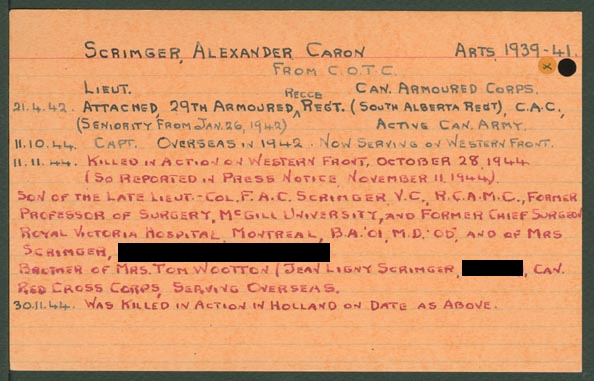 SCRIMGER, ALEXANDER CARON ARTS, 1939-41.
FROM C.O.T.C.
LIEUT. CAN. ARMOURED CORPS.
21.4.42. ATTACHED, 29TH ARMOURED, RECCE REGT. (SOUTH ALBERTA REGT), C.A.C.,
(SENIORITY FROM JAN. 26, 1942) ACTIVE CAN. ARMY.
11.10.44. CAPT. OVERSEAS IN 1942. NOW SERVING ON WESTERN FRONT.
11.11.44. KILLED IN ACTION ON WESTERN FRONT, OCTOBER 28, 1944
(SO REPORTED IN PRESS NOTICE NOVEMBER 11, 1944).
SON OF THE LATE LIEUT.-COL. F.A.C. SCRIMGER, V.C., R.C.A.M.C., FORMER
PROFESSOR OF SURGERY, MCGILL UNIVERSITY, AND FORMER CHIEF SURGEON
ROYAL VICTORIA HOSPITAL, MONTREAL, B.A. '01, M.D. '05, AND OF MRS
SCRIMGER,
BROTHER OF MRS. TOM WOOTTON (JEAN LIGNY SCRIMGER, , CAN.
RED CROSS CORPS, SERVING OVERSEAS.
30.11.44. WAS KILLED IN ACTION IN HOLLAND ON DATE AS ABOVE.